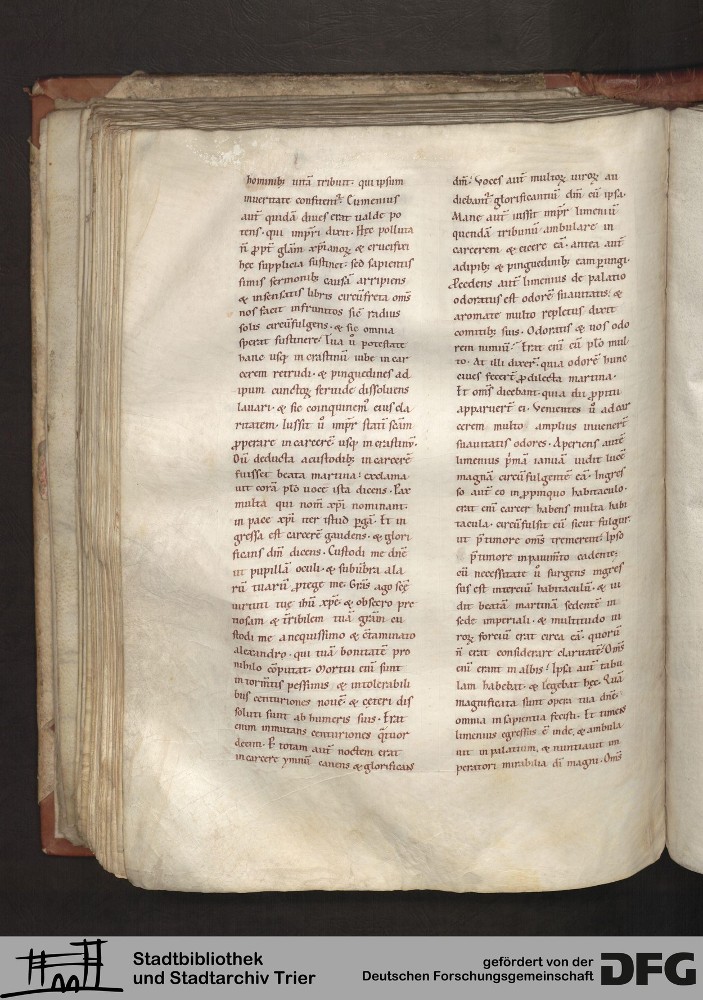 hominibꝫ uitā tribuit· qui ipsum
inueritate confitent᷑· Cumenius
aut̄ quidā diues erat ualde po
tens· qui imp̄ri dixit· Hęc polluta
n̄ ꝓpt̄ gl̄am xp̄ianoꝝ & crucifixi
hęc supplicia sustinet· sed sapientis
simis sermonibꝫ causā arripiens
& insensatis libris circūfreta om̄s
nos facit infrunitos sic̄ radius
solis circūfulgens· & sic omnia
sperat sustinere· Tua ū potestate
hanc usqꝫ in crastinū iube in car
cerem retrudi· & pinguedines ad
ipum cunctoꝝ feruide dissoluens
lauari· & sic coinquinem᷑ eius cla
ritatem· Iussit ū imp̄r statī sc̄am
ꝓperare in carcerē usqꝫ in crastinū·
Cū deducta a custodibꝫ in carcerē
fuisset beata martina· exclama
uit corā pl̄o uoce ista dicens· Pax
multa qui nom̄ xp̄i nominant·
in pace xp̄i iter istud ꝑgā· Et in
gressa est carcerē gaudens· & glori
ficans dm̄ dicens· Custodi me dn̄e
ut pupillā oculi· & subūbra ala
rū tuarū ꝓtege me· Gr̄as ago sc̄ę
uirtuti tuę ih̄u xp̄e· & obsecro pre
nosam & t̄ribilem tuā gr̄am cu
stodi me a nequissimo & c̄taminato
alexandro· qui tuā bonitatē pro
nihilo cōputat· Mortui eni᷑ sunt
in torm̄tis pessimis & intolerabili
bus centuriones nouē· & ceteri dis
soluti sunt ab humeris suis· Erāt
enim inmutans centuriones q̄tuor
decim· P totam aut̄ noctem erat
in carcere ymnū canens & glorificans
dm̄· Voces aut̄ multoꝝ uiroꝝ au
diebant᷑ glorificantiū dm̄ cū ipsa·
Mane aut̄ iussit imp̄r limeniū
quendā tribunū ambulare in
carcerem & eicere eā· antea aut̄
adipibꝫ & pinguedinibꝫ eam ꝑungi·
Procedens aut̄ limenius de palatio
odoratus est odorē suauitatis· &
aromate multo repletus dixit
comitibꝫ suis· Odoratis & uos odo
rem nimiū· Erat eni᷑ cū pl̄o mul
to· At illi dixer̄· quia odorē hunc
ciues fecer̄t ꝓ dilecta martina·
Et om̄s dicebant· quia dii ꝓpitii
apparuer̄t ei· Venientes ū ad car
cerem multo amplius inuener̄t
suauitatis odores· Aperiens aut̄ē
limenius p̄mā ianuā uidit lucē
magnā circūfulgentē eā· Ingres
so aut̄ eo in ꝓpinquo habitaculo·
erat eni᷑ carcer habens multa habi
tacula· circūfulsit eū sicut fulgur·
ut p̄ timore om̄s tremerent· Ipso
p̄ timore in pauim̄to cadente·
cū necessitate ū surgens ingres
sus est interiꝰ habitaculū· & ui
dit beatā martinā sedentē in
sede imperiali· & multitudo ui
roꝝ forciū erat circa eā· quorū
n̄ erat considerare claritatē· Om̄s
eni᷑ erant in albis· Ipsa aut̄ tabu
lam habebat· & legebat hęc· Quā
magnificata sunt opera tua dn̄e·
omnia in sapientia fecisti· Et timens
limenius egressus ē inde· & ambula
uit in palatium, & nuntiauit im
peratori mirabilia di᷑ magni· Om̄s
Stadtbibliothek
und Stadtarchiv Trier
gefördert von der
Deutschen Forschungsgemeinschaft
DFG